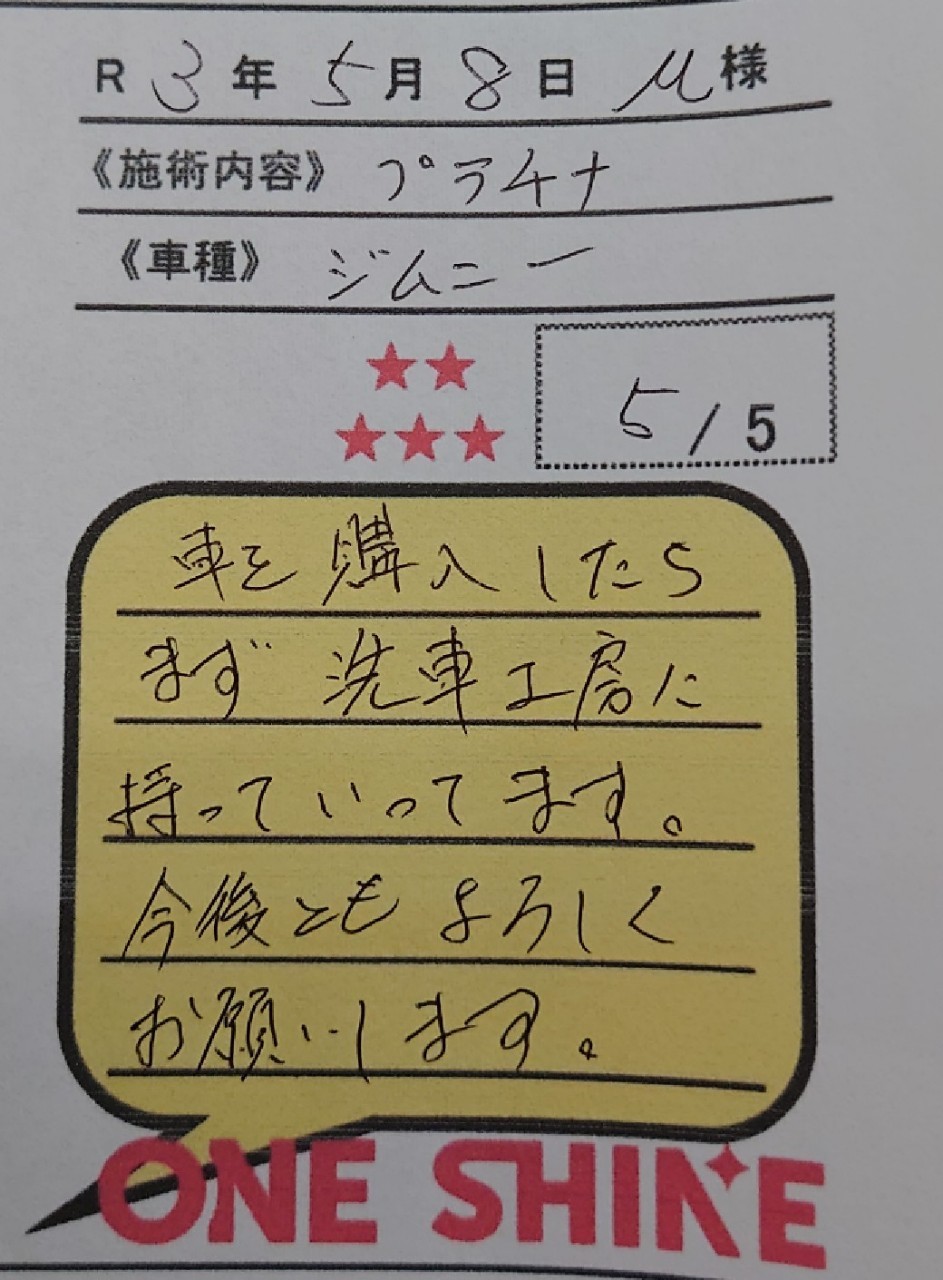 R 3年 5月 8日 M様
《施術内容》 プラチナ
《車種》 ジムニー
★★
★★★
5/5
車を購入したら
まず 洗車工房に
持っていってます。
今後とも よろしく
お願いします。
ONE SHINE